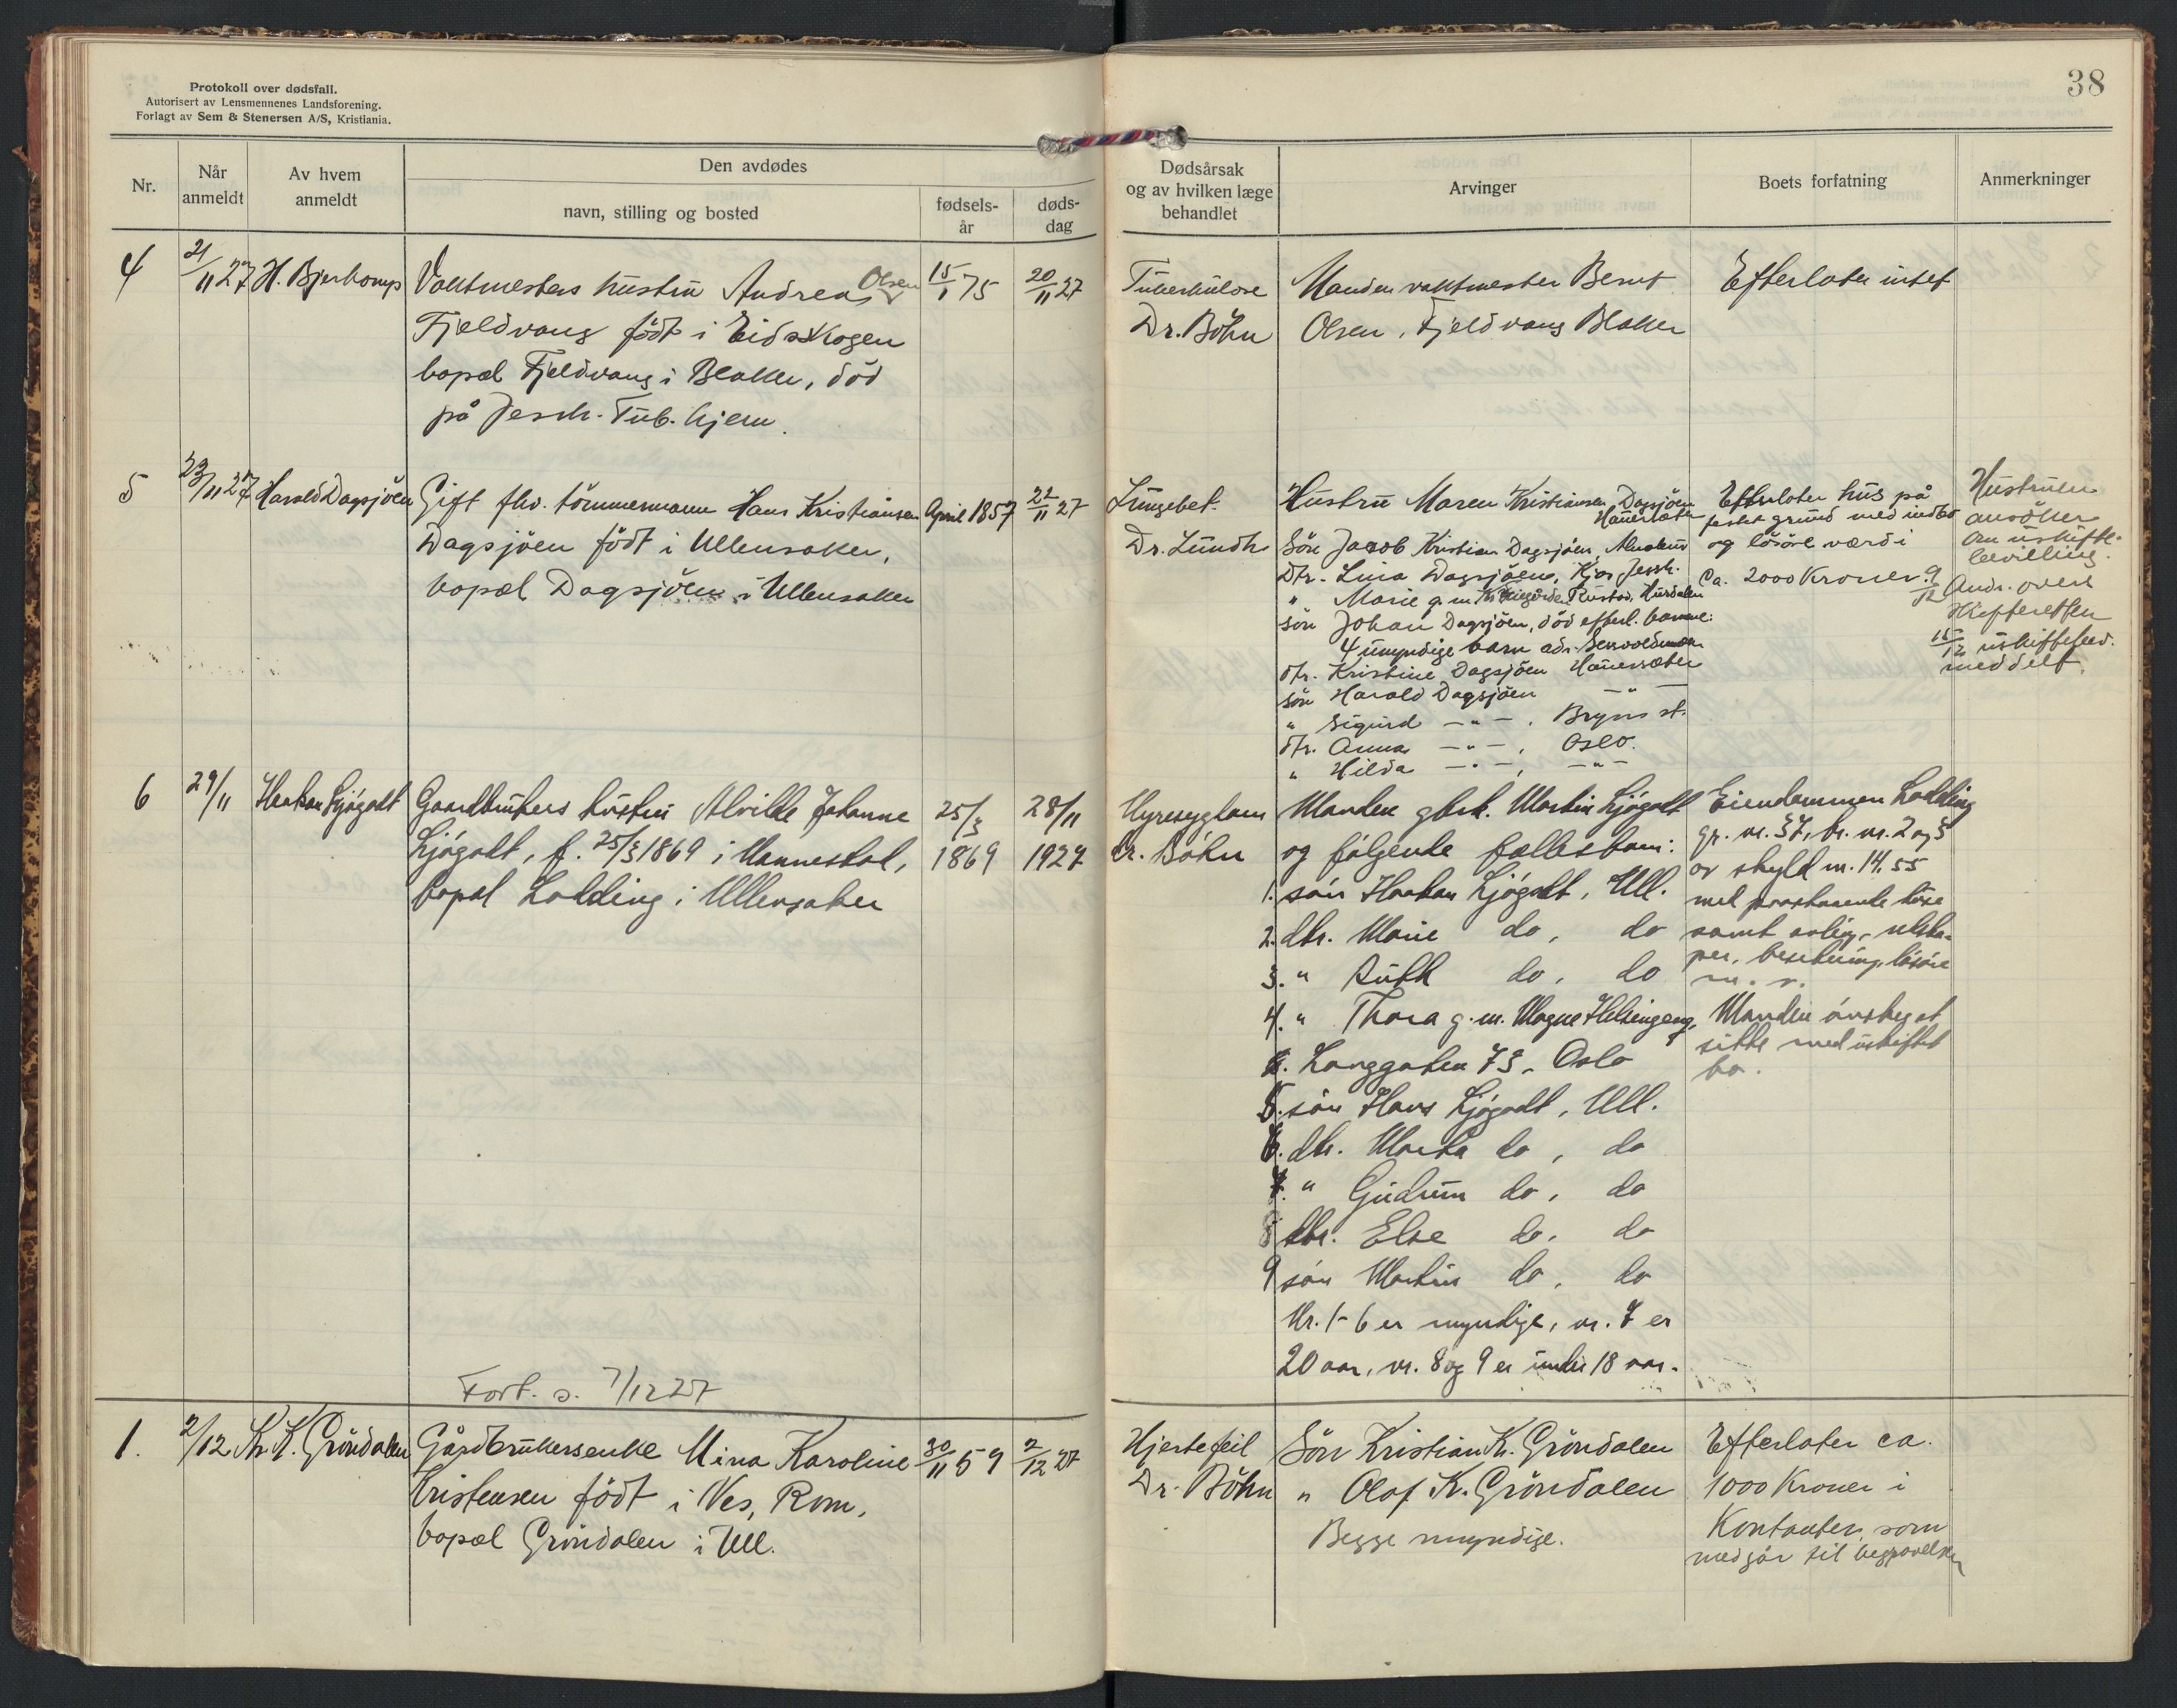 Protokoll over dødsfall.
Autorisert av Lensmennenes Landsforening.
Forlagt av Sem & Stenersen A/S, Kristiania.
38
Nr.
Når anmeldt
Av hvem anmeldt
Den avdødes
navn, stilling og bosted
fødsels-år
døds-dag
Dødsårsak og av hvilken læge behandlet
Arvinger
Boets forfatning
Anmerkninger
4
21/11 27
H. Bjerkomp
Vaktmesters hustru Andrea Olsen
Fjeldvang født i Eidskogen
bopæl Fjeldvang i Blaker, død
på Jessh. Tub. hjem.
15/1 75
20/11 27
Tuberkulose
Dr. Bøhn
Manden vaktmester Bernt
Olsen, Fjeldvang Blaker
Efterlater intet
5
23/11 27
Harald Dagsjøen
Gift fhv. tømmermann Hans Kristiansen
Dagsjøen født i Ullensaker,
bopæl Dagsjøen i Ullensaker
April 1857
22/11 27
Lungebet.
Dr. Lundh
Hustru Maren Kristiansen Dagsjøen
Hauersæter
Søn Jacob Kristian Dagsjøen,
Dtr. Lina Dagsjøen, Kjos Jessh.
" Marie g. m. Rustad, Hurdalen
søn Johan Dagsjøen, død efterl.
4 umyndige barn adr.
dtr. Kristine Dagsjøen Hauersæter
søn Harald Dagsjøen — " —
" Sigurd — " — , Bryns st.
dtr. Anna — " — , Oslo.
" Hilda — " — , — " —
Efterlater hus på
festet grund med indbo
og løsøre værdi
ca. 2000 Kroner.
Hustruen
ansøker
om uskifte-
bevilling.
9/12 Andr. overl
Skifteretten
15/12 uskiftebev.
meddelt.
6
29/11
Haakon Ljøgodt
Gaardbrukers hustru Alvilde Johanne
Ljøgodt, f. 25/3 1869 i Mannestad,
bopæl Lodding i Ullensaker
25/3
1869
28/11
1927
Nyresygdom
dr. Bøhn
Manden gbrk. Martin Ljøgodt
og følgende fællesbarn:
1. søn Haakon Ljøgodt, Ull.
2. dtr. Marie do, do
3. " Ruth do, do
4. " Thora g. m. Magne Helsingeng,
Langgaten 73, Oslo
5. søn Hans Ljøgodt, Ull.
6. dtr. Marta do, do
7. " Gudrun do, do
8 dtr. Else do, do
9 søn Martin do, do
Nr. 1-6 er myndige, nr. 7 er
20 aar, nr. 8 og 9 er under 18 aar.
Eiendommen Lodding
gr. nr. 37, br. nr. 2 og 3
av skyld m. 14.55
med paastaaende huse
samt avling, redska-
per, besetning, løsøre
m. v.
Manden ønsker at
sitte med uskiftet
bo.
Fort. s. 7/12 27
1.
2/12
Kr. K. Grøndalen
Gårdbrukersenke Mina Karoline
Kristensen født i Nes, Rom,
bopæl Grøndalen i Ull.
30/11 59
2/12 27
Hjertefeil
Dr. Bøhn
Søn Kristian K. Grøndalen
" Olaf K. Grøndalen
Begge myndige.
Efterlater ca.
1000 Kroner i
Kontanter, som
medgår til begravelsen